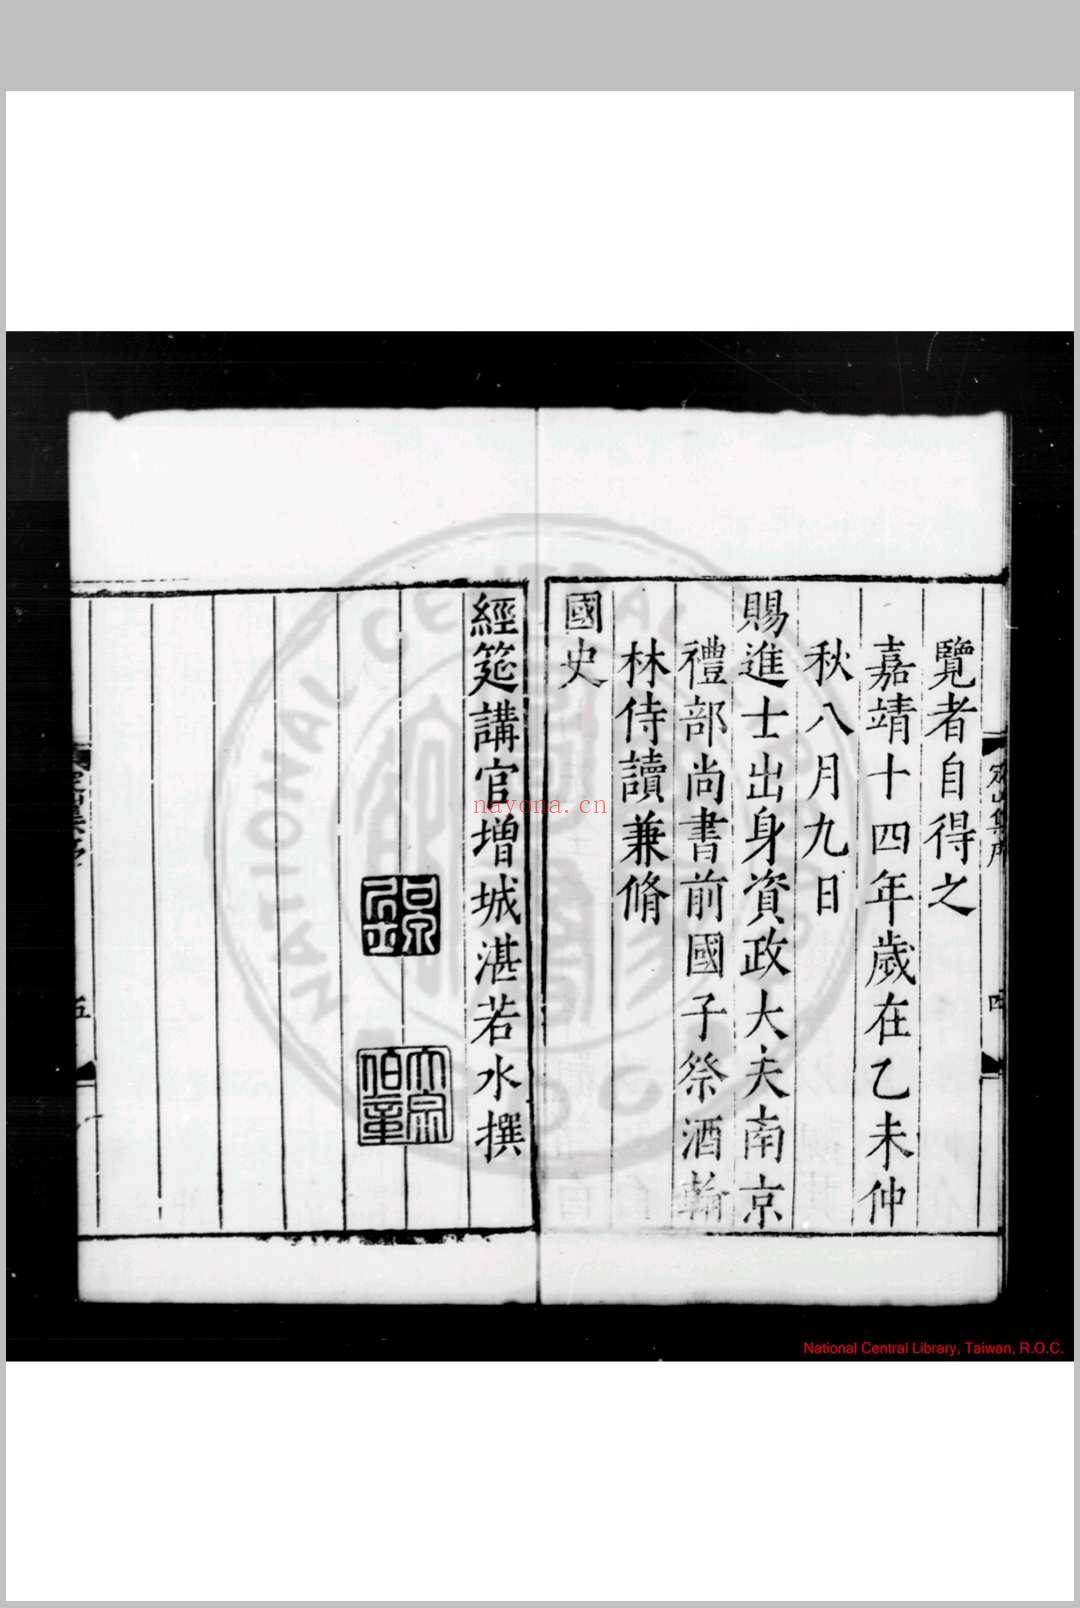 覽者自得之
嘉靖十四年歲在乙未仲
秋八月九日
賜進士出身資政大夫南京
禮部尚書前國子祭酒翰
林侍讀兼脩
國史
經筵講官增城湛若水撰
大宗
伯章
五
四
NATIONAL CENTRAL LIBRARY
R.O.C.
nayona.cn
National Central Library, Taiwan, R.O.C.